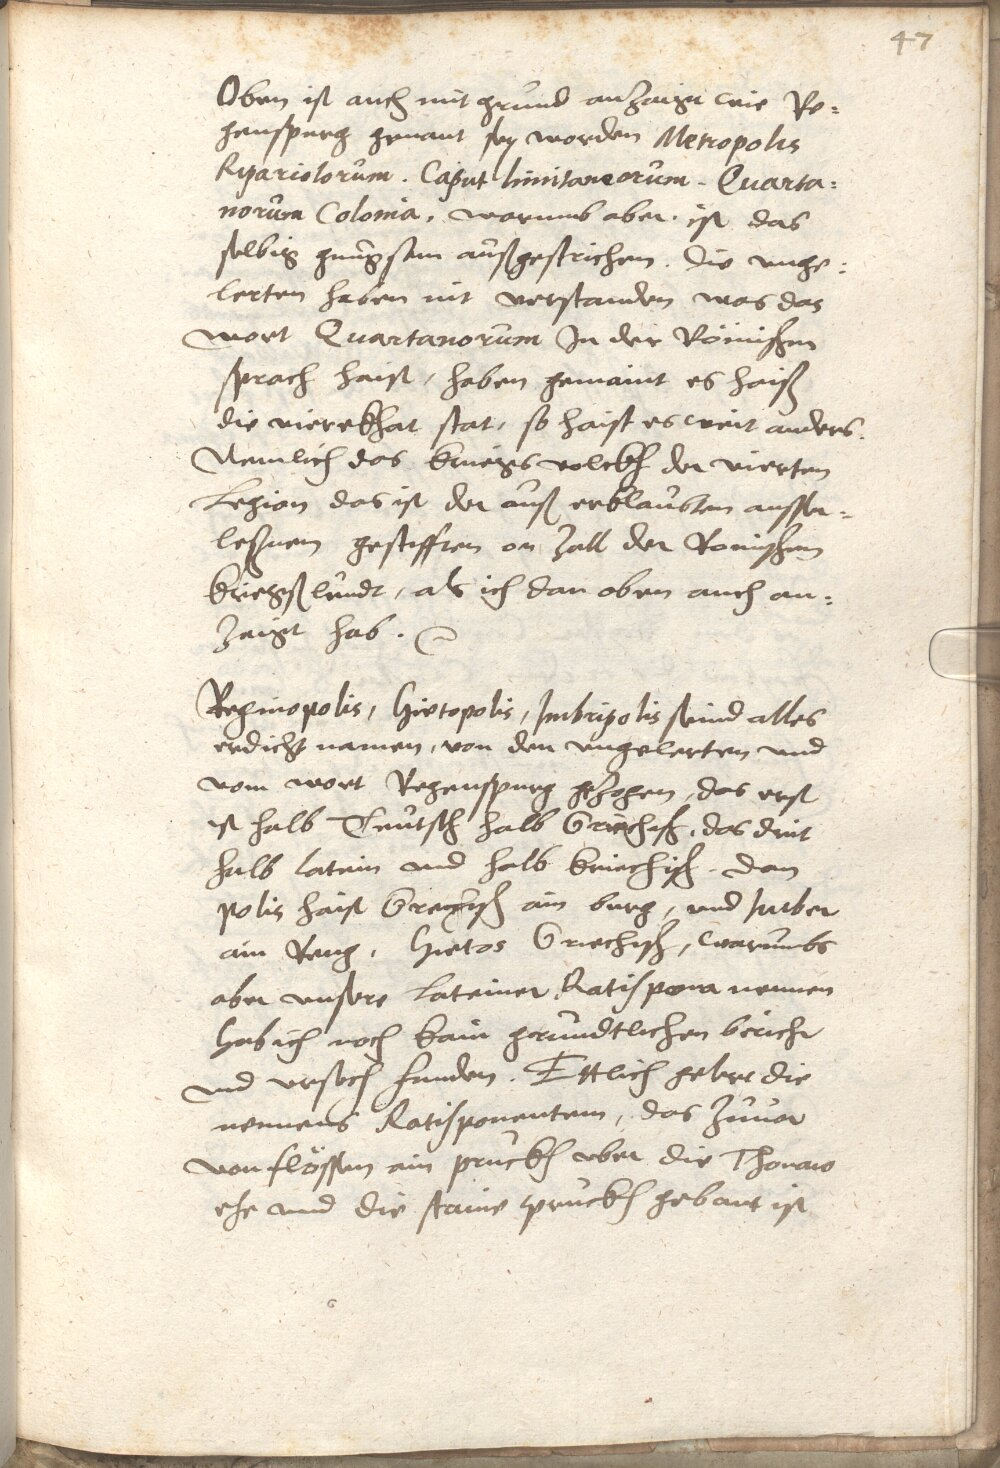 47
Oben ist auch mit grund anzaigt wie Re=
genspurg genant sey worden Metropolis
Rypariolorum. Caput limitaneorum. Quarta=
norum Colonia, warumb aber ist das
selbig gnůgsam außgestrichen. Die unge=
lerten haben nit verstanden was das
wort Quartanorum In der Römischen
sprach haist, haben gemaint es haiß
die vierekhat stat, so haist es weit anders.
Nemlich das kriegs volckh der vierten
Legion das ist der auß erklaubten ausser=
leßnem gestifften on zall der Romischen
kriegßleudt, als ich dan oben auch an=
zaigt hab.
Reginopolis, Hietopolis, Imbripolis seind alles
erdicht namen, von den ungelerten und
vom wort Regenspurg gezogen, das erst
ist halb Teutsch halb Griechisch, das drit
halb latein und halb kriechisch. Dan
polis haist Grechisch ain burg, und Imber
ain Reng, Hietos Griechisch, warumbs
aber unsere Lateiner Ratispona nennen
hab ich noch kain grundtlichen bericht
und ursach funden. Ettlich gelert die
nennens Ratisponentem, das zuvor
von flössen ain pruckh uber die Thonaw
ehe und die staine pruckh gebaut ist